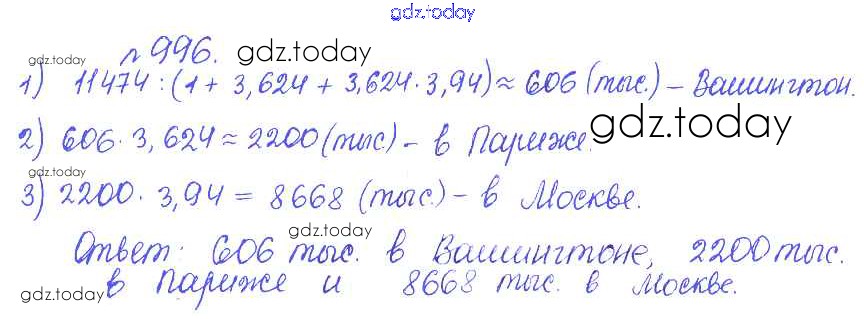 gdz.today
№ 996. gdz.today
gdz.today
1) 11474 : (1 + 3,624 + 3,624 · 3,94) ≈ 606 (тыс.) – Вашингтон.
2) 606 · 3,624 ≈ 2200 (тыс) – в Париже.
gdz.today
gdz.today
3) 2200 · 3,94 = 8668 (тыс.) – в Москве.
gdz.today
Ответ: 606 тыс. в Вашингтоне, 2200 тыс.
gdz.today
в Париже и 8668 тыс. в Москве.